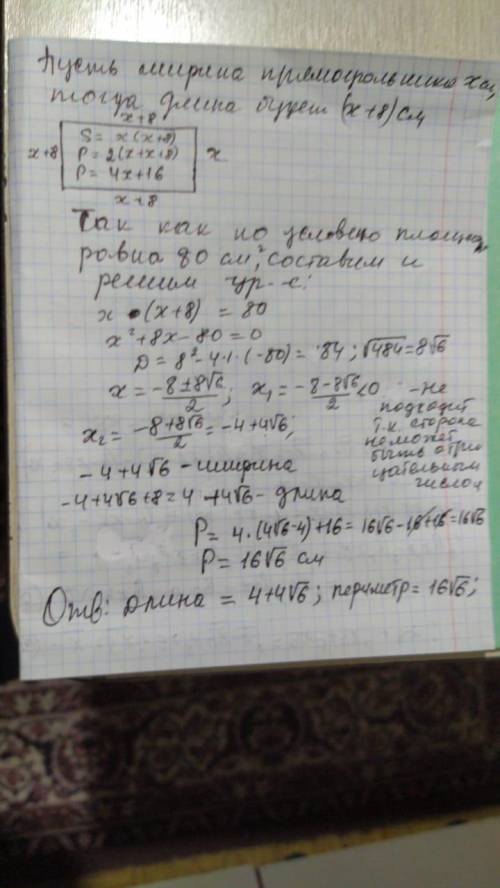 Пусть ширина прямоугольника x см,
тогда длина будет (x+8) см
x+8
S = x(x+8)
x+8 P = 2(x+x+8) x
P = 4x+16
x+8
Так как по условию площадь
равна 80 см², составим и
решим ур-е:
x • (x+8) = 80
x²+8x-80=0
D = 8²-4·1·(-80) = 84; √484=8√6
x = (-8±8√6)/2; x₁ = (-8-8√6)/2 <0 - не
подходит
т.к. сторона
не может
быть отри
цательным
числом
x₂ = (-8+8√6)/2 = -4+4√6;
-4+4√6 - ширина
-4+4√6+8=4+4√6 - длина
P = 4·(4√6-4)+16 = 16√6-16+16=16√6
P = 16√6 см
Отв: длина = 4+4√6; периметр = 16√6;